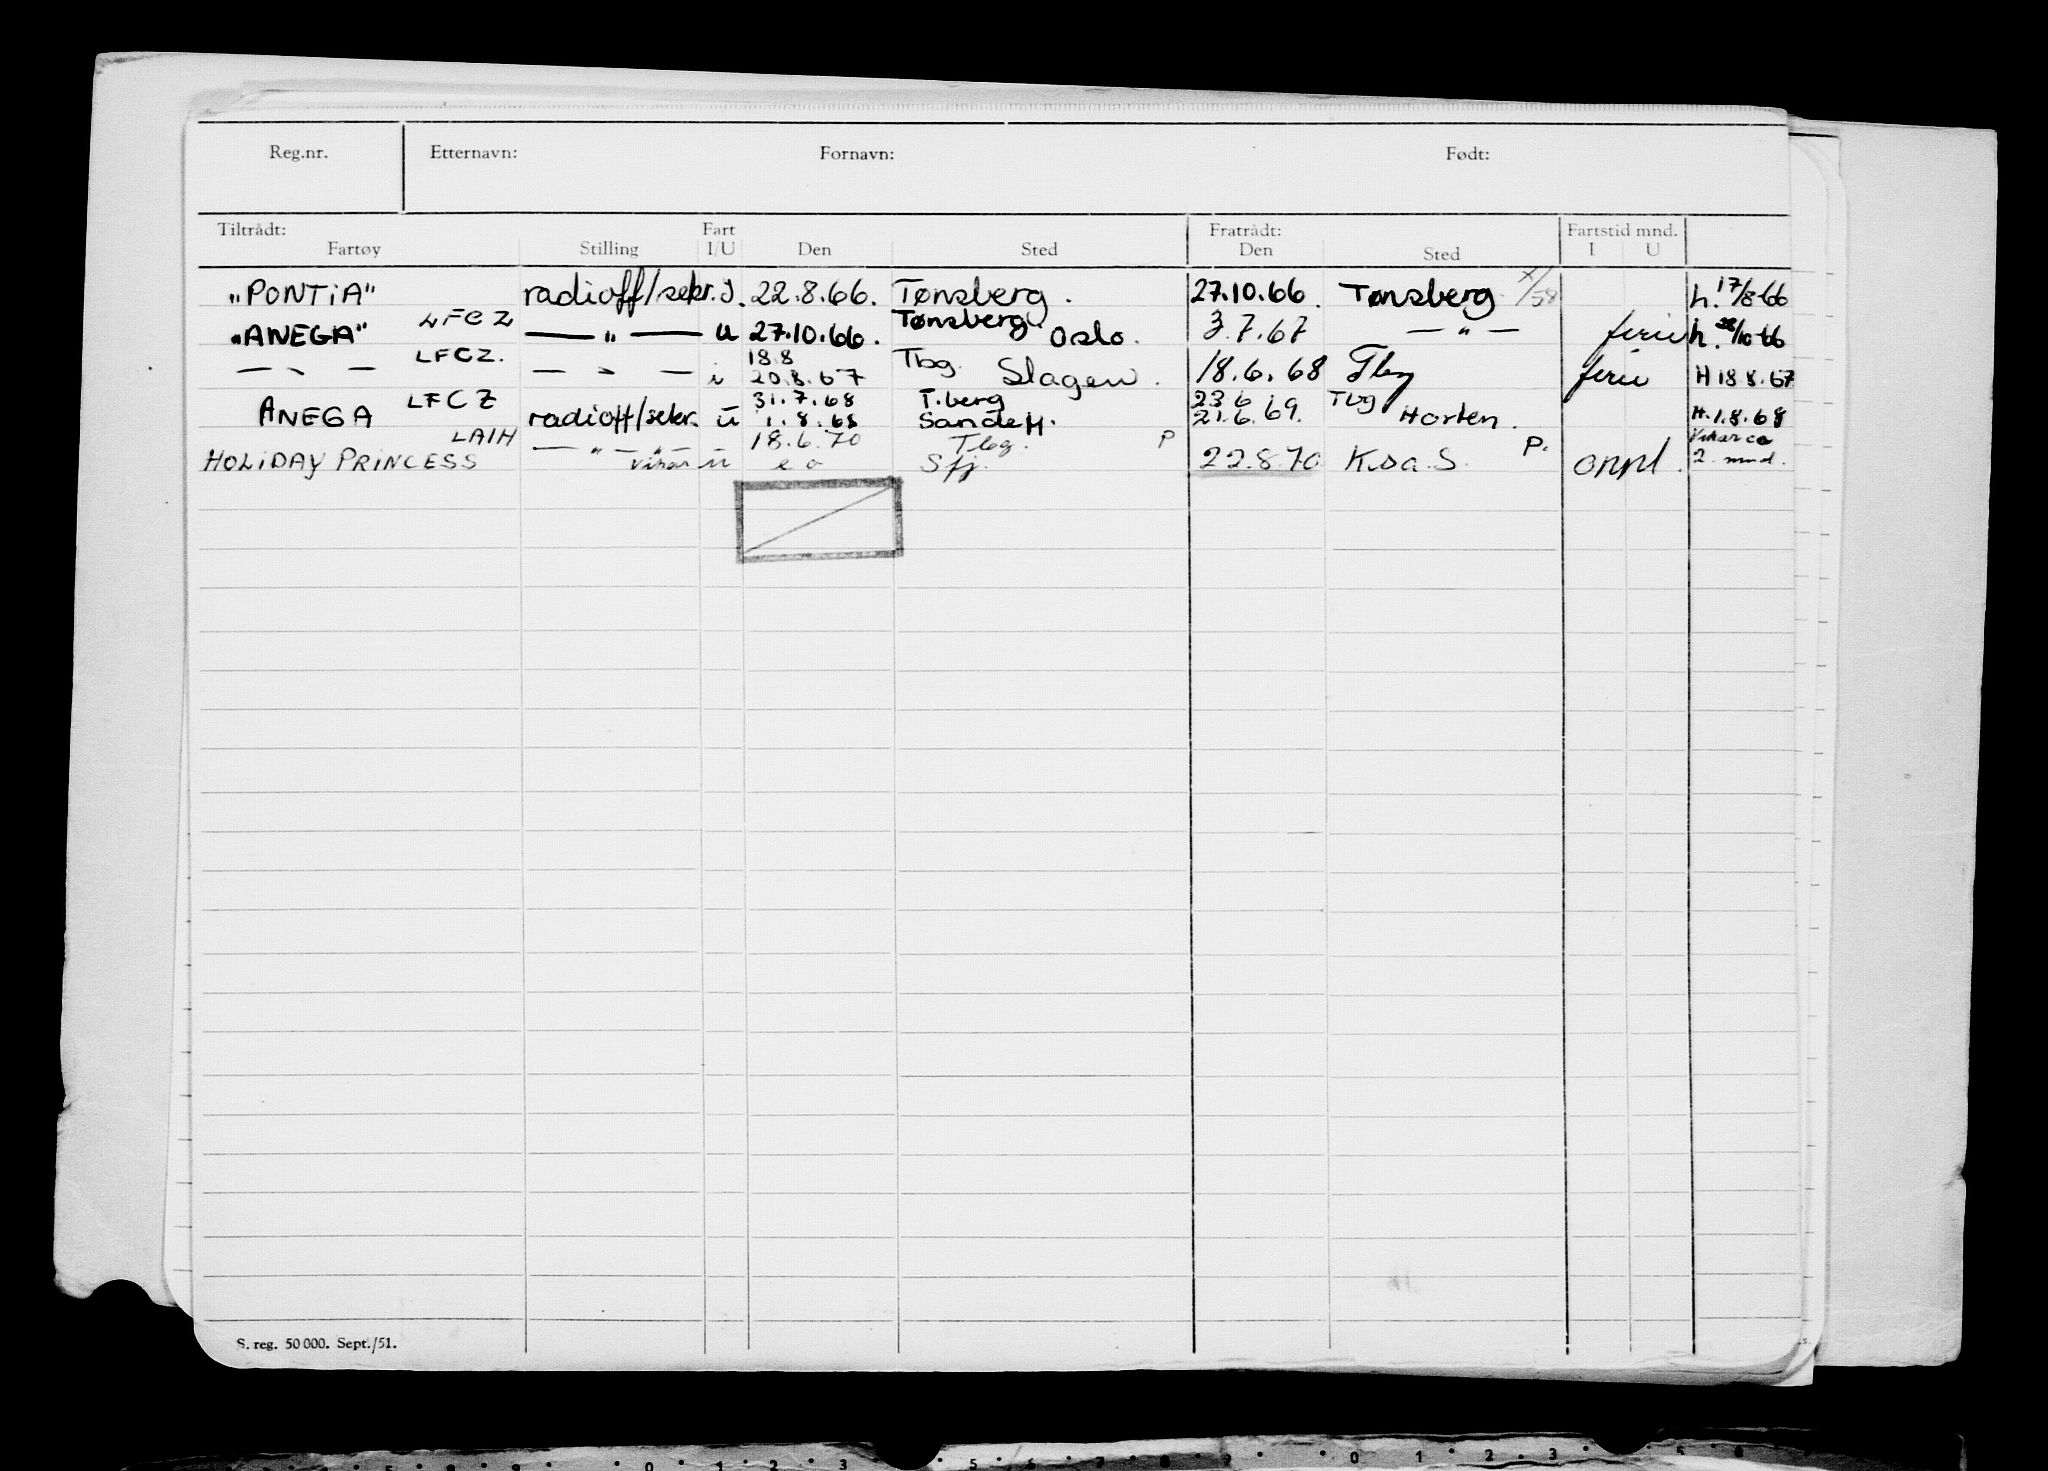 Reg.nr. Etternavn: Fornavn: Født:
Tiltrådt: Fart Fratrådt: Fartstid mnd.
Fartøy Stilling I/U Den Sted Den Sted I U
"PONTiA" radioff/sekr. I. 22.8.66. Tønsberg. 27.10.66. Tønsberg h. 17/8-66
LFCZ Tønsberg
"ANEGA" — " — u 27.10.66. Oslo. 3.7.67 — " — ferie h. 28/10 66
LFCZ. 18.8 Tbg.
— " — — " — i 20.8.67 Slagen. 18.6.68 Tbg ferie H 18.8.67
LFCZ 31.7.68 T.berg 23.6 Tbg
ANEGA radioff/sekr. u 1.8.68 Sandefj. 21.6.69. Horten. H.1.8.68
LAIH 18.6.70 Tbg. P P. Vikar ca
HOLiDAY PRINCESS — " — " — vikar u e o Sfj. 22.8.70 K.s.a.S. 2 mnd.
S. reg. 50 000. Sept./51.